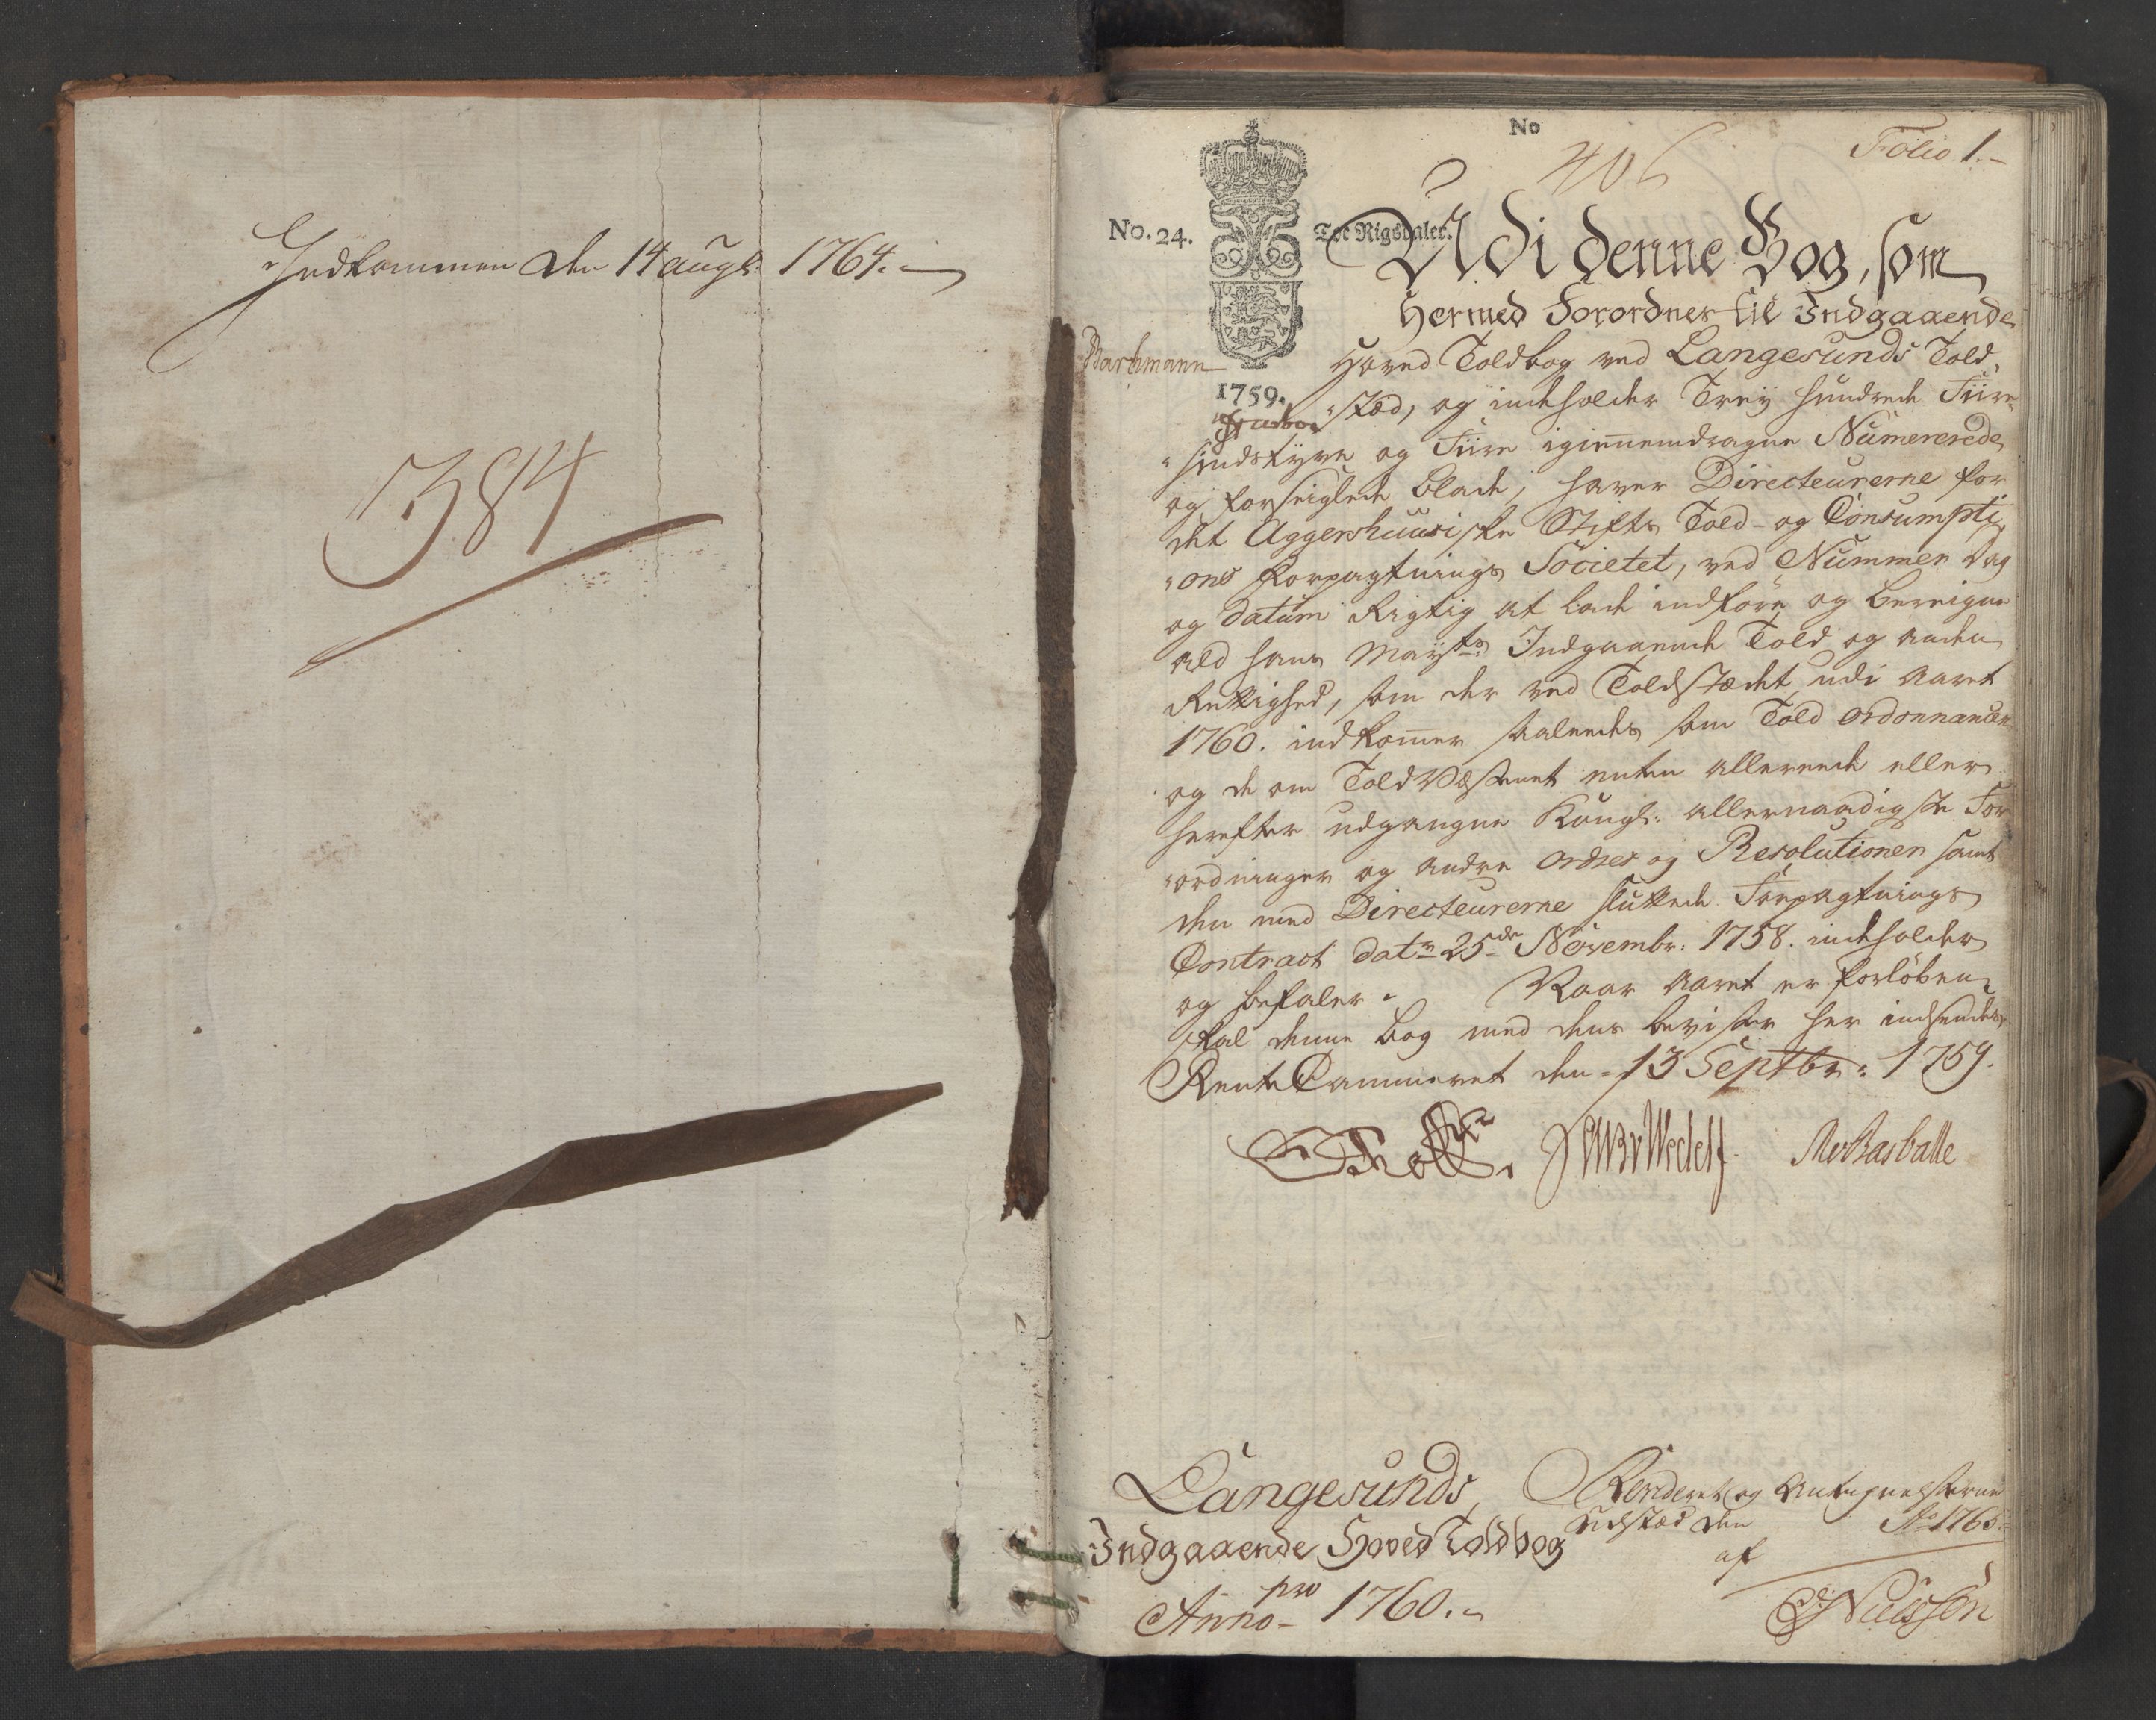 Indkommen den 14 augs: 1764.
384
No
406
Folio 1.
No. 24.
Toe Rigsdaler.
1759.
Udi denne Bog, som
hermed Forordnes til Indgaaende
Hoved Toldbog ved Langesunds Told,
"stæd, og indeholder Trey hundrede Fiire,
"sindstyve og Fiire igiennemdragne Numererede
og forseiglede blade, haver Directeurerne for
det Aggershuusiske Stifts Told- og Consumpti,
"ons Forpagtnings Societet, ved Nummer Dag
og datum Rigtig at lade indføre og bereigne
ald hans Mayts: Indgaaende Told og anden
Rettighed, som der ved Toldstædet udi Aaret
1760. indkommer saaledes som Told ordonnancen
og de om Told Væsenet enten allerede eller
herefter udgangne Kongl: allernaadigste For
"ordninger og andre ordres og Resolutioner samt
den med Directeurerne sluttede Forpagtnings
Contract dat: 25de Novembr: 1758. indeholder
og befaler. Naar Aaret er forløben,
skal denne bog med dens beviser her indsendes,
RenteCammeret den 13 Septbr: 1759.
Langesunds
Indgaaende Hoved Toldbog
pro
Anno 1760.
Revideret og Antegnelserne
udstæd den Ao 1765
af
Nielssøn